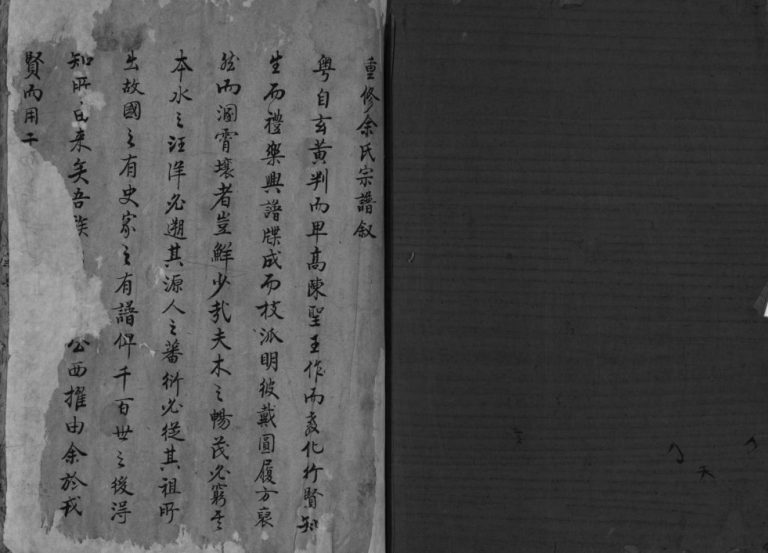 重修余氏宗譜叙
粤自玄黄判而卑高陳聖王作而教化行賢知
生而禮樂興譜牒成而枝派明彼戴圓履方裒
然而溷霄壤者豈鮮少哉夫木之暢茂必窮其
本水之汪洋必遡其源人之蕃衍必從其祖所
出故國之有史家之有譜仰千百世之後得
知所自来矣吾族 公西擢由余於戎
賢而用